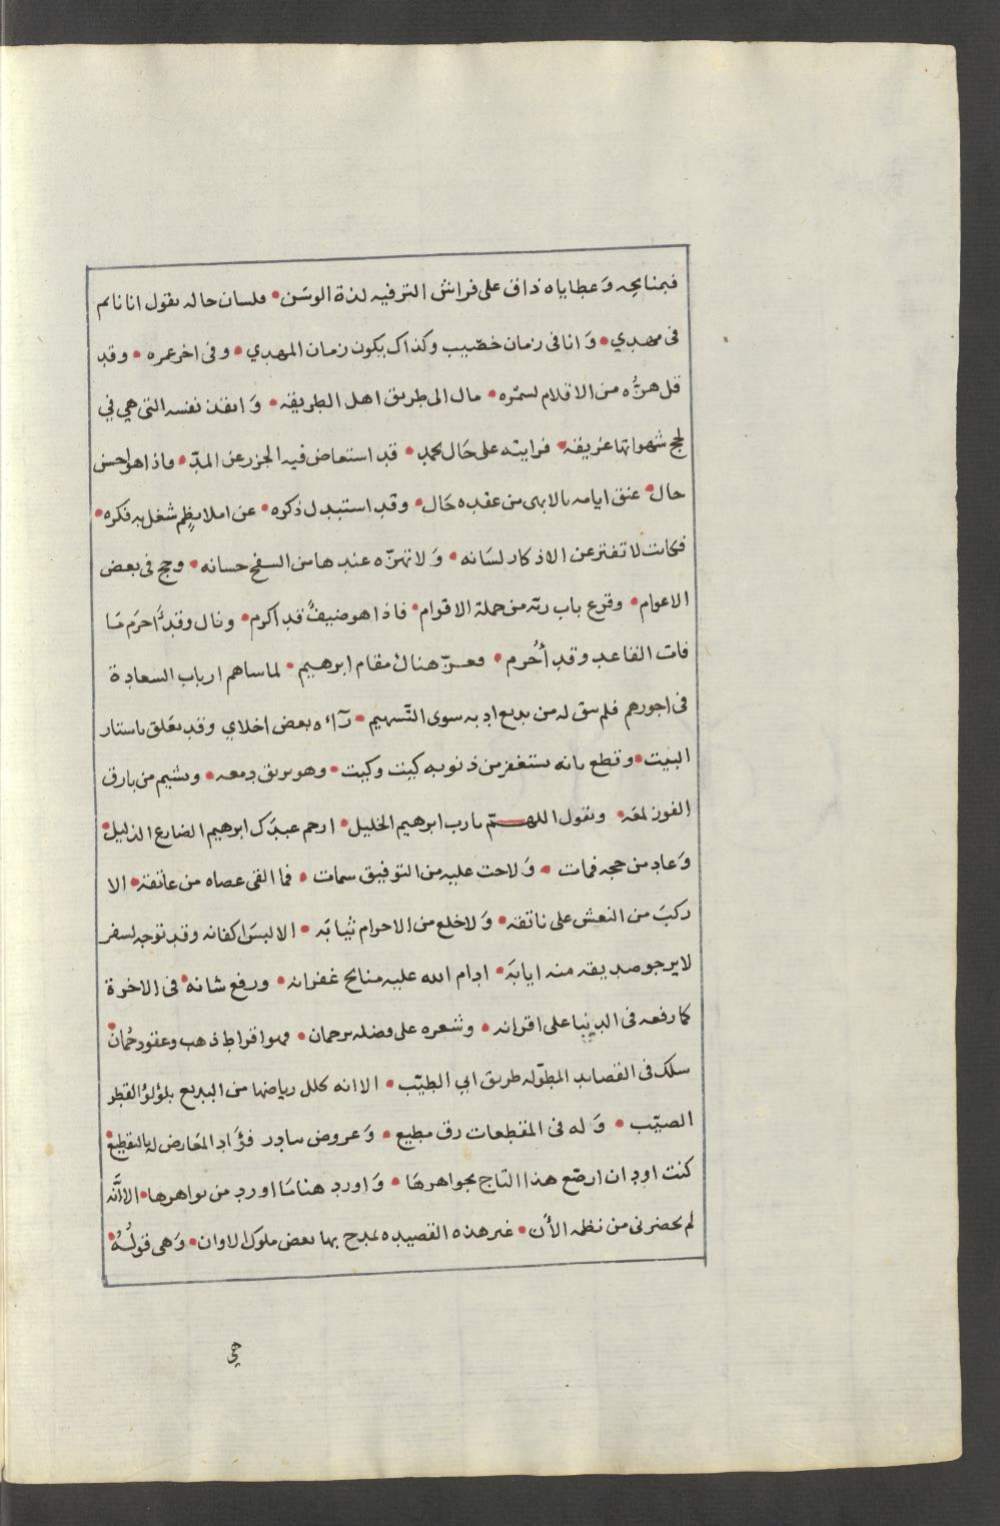 فبمنايحه وَعطاياه ذاق على فراش الترفيه لذة الوسَن • فلسان حاله يقول انا نايم
فى مهدي • وَانا فى زمان خصّيب وكذاك يكون زمان المهدي • وفى اخر عمره • وقد
قل هزُّه من الاقلام لسمّره • مال الى طريق اهل الطريقه • وَانقذ نفسه التى هي في
لجج شهواتها غريقه • فرايته على حَال يحمد • قد استعاض فيه الجزر عن المدّ • واذا هو احسن
حال • عنق ايامه بالابهى من عقده حَال • وقد استبدل ذكره • عن املا نظم شغل به فكره •
فكانت لا تفتر عن الاذكار لسَانه • وَلا تهزّه عند هامن السفح حسانه • وحج فى بعض
الاعوام • وقرع باب ربّه من جملة الاقوام • فاذا هو ضيفٌ قد اكرم • ونال وقد اُحرَم مَا
فات القاعد وقد أُحُرم • فعزّ هناك مقام ابرهيم • لما ساهم ارباب السعادة
فى اجورهم فلم يبق له من بديع ادبه سوى التّسهيم • رآه بعض اخلاي وقد تعَلق باستار
البيت • وقطع بانه يستغفر من ذنوبه كيت وكيت • وهو يريق دمعه • ويشيم من بارق
الفوز لمعَه • ويقول اللهـــمّ يا رب ابرهيم الخليل • ارحم عبدَك ابرهيم الضارع الذليل •
وَعاد من حجه فمات • وَلاحت عليه من التوفيق سمات • فما القى عصاه من عاتقه • الا
ركبَ من النعش على ناتقه • وَلا خلع من الاحرام ثيابَه • الا لبسَ اكفانه وقد توجه لسفر
لا يرجو صديقه منه ايابَه • ادام الله عليه منايح غفرانه • ورفع شانه • فى الاخرة
كما رفعه فى الدنيا على اقرانه • وشعره على فضله برجمان • فهوا قراط ذهب وعقود جُمان •
سلك فى القصايد المطوّله طريق ابي الطيّب • الا انه كلل رياضها من البديع بلؤلؤ القطر
الصيّب • وَله فى المقطعات رق مطيع • وَعروض سادر فؤَاد المعَارض له بالتقطيع •
كنت اود ان ارصّع هذا التاج بجواهرهَا • وَاورد هنا مَا اورد من نواهرها • الا انَّه
لم يحضرنى من نظمه الأن • غير هذه القصيده يمدح بها بعض ملوك الاوان • وَهى قولُهُ •
هي